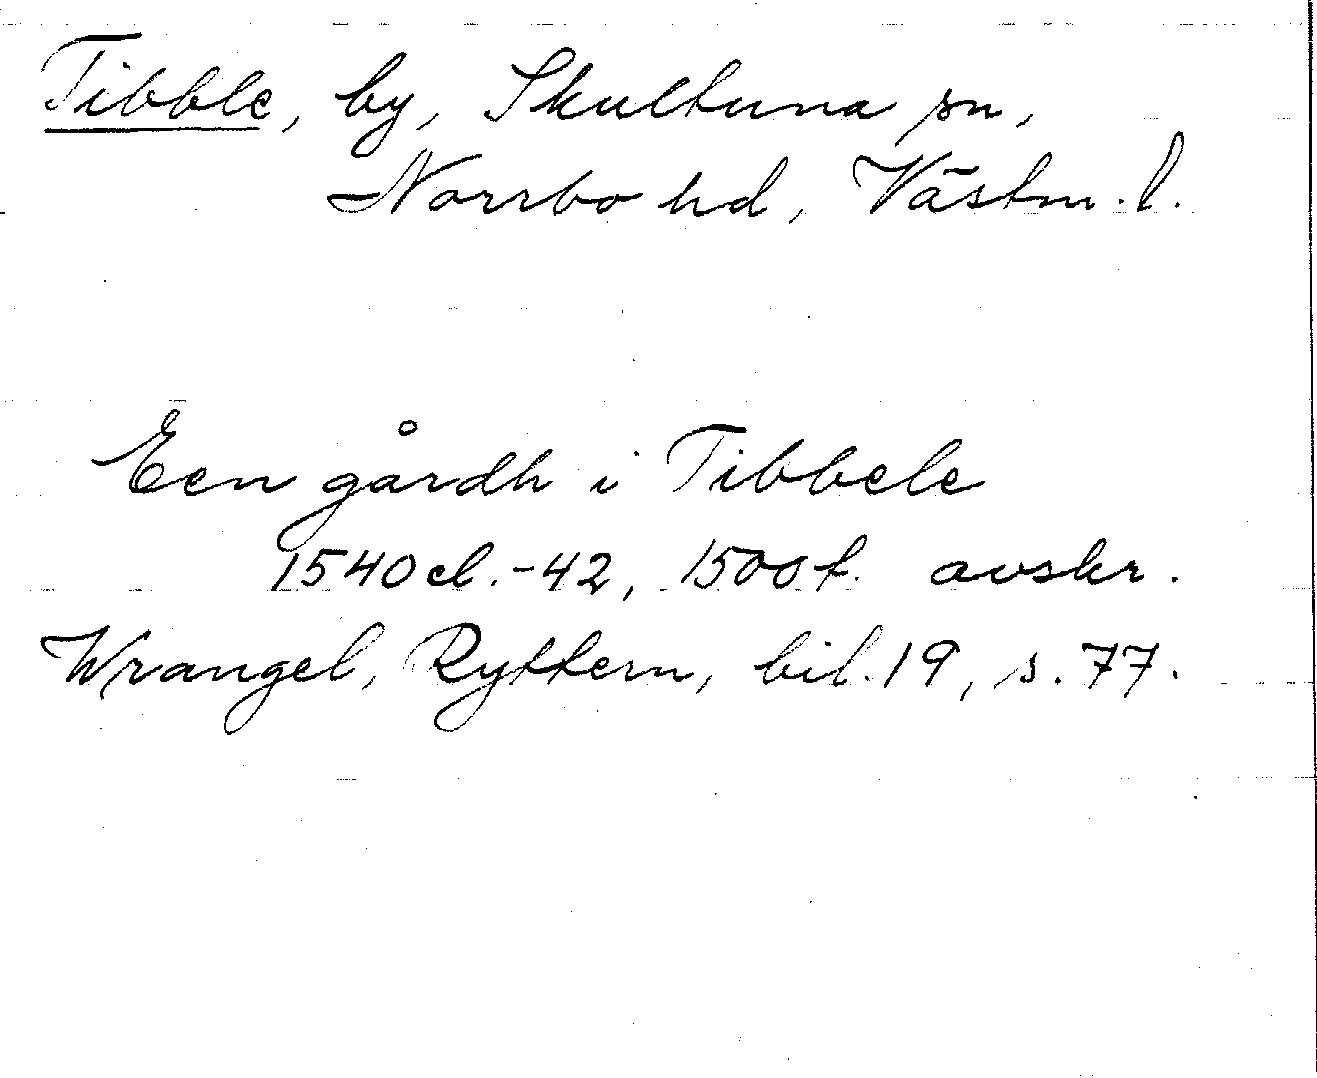 Tibble, by, Skultuna sn,
Norrbo hd, Västm. l.
Een gårdh i Tibbele
1540 el.-42, 1500t. avskr.
Wrangel, Ryttern, bil. 19, s. 77.